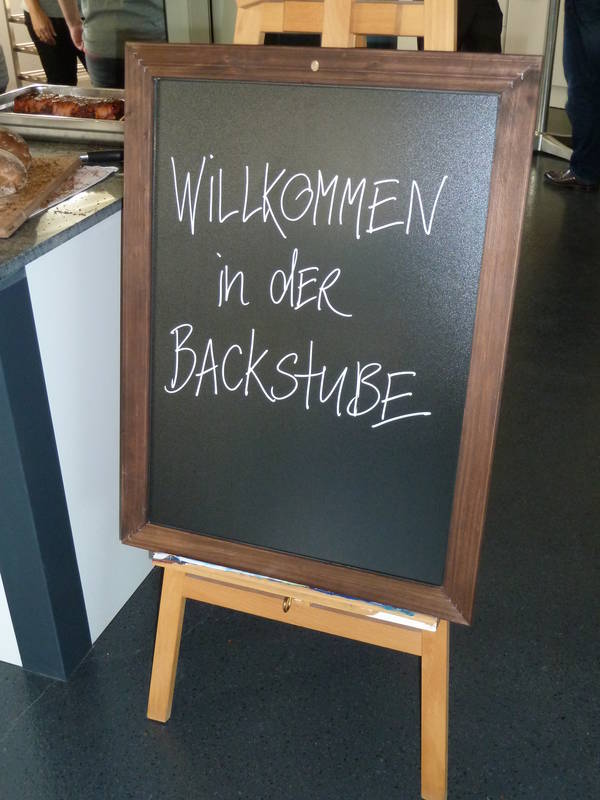 WiLLKOMMEN
in dER
BACKStuBE